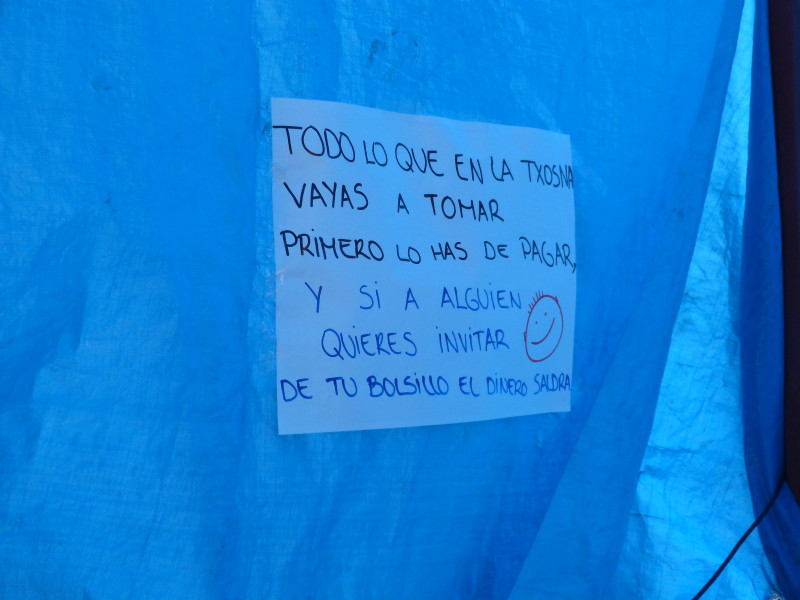 TODO LO QUE EN LA TXOSNA
VAYAS A TOMAR
PRIMERO LO HAS DE PAGAR,
Y SI A ALGUIEN
QUIERES INVITAR
DE TU BOLSILLO EL DINERO SALDRA